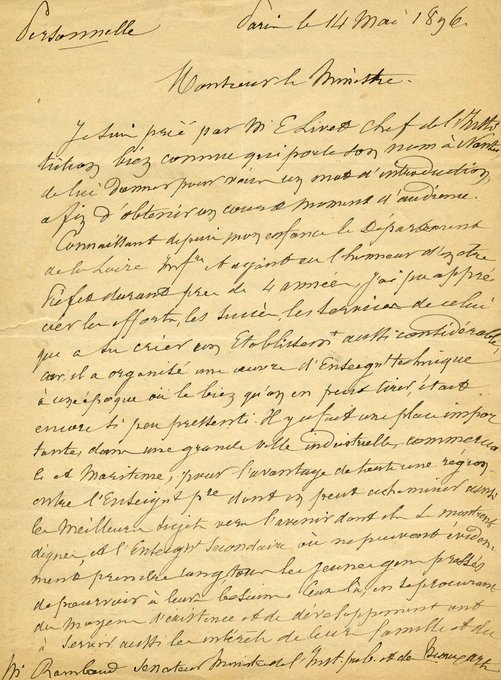 Personnelle
Paris le 14 Mai 1896.
Monsieur le Ministre.
Je suis prié par Mr E Livet Chef de l'Insti
tution bien connue qui porte son nom à Nantes
de lui donner pour vous un mot d'introduction,
afin d'obtenir un court moment d'audience.
Connaissant depuis mon enfance le Département
de la Loire Infre et ayant eu l'honneur d'en être
Préfet durant près de 4 années, j'ai pu appré
cier les efforts, les succès, les services de celui
qui a su créer un Etablissent aussi considérable,
car il a organisé une œuvre d'Enseignt technique
à une époque où le bien qu'on en peut tirer, était
encore si peu pressenti. Il y a fait une place impor
tante, dans une grande ville industrielle, commercia
le et Maritime, pour l'avantage de toute une région,
entre l'Enseignt pre dont on peut acheminer ainsi
les Meilleurs Sujets vers l'avenir dont ils se montrent
dignes, et l'Enseignt Secondaire où ne peuvent évidem
ment prendre rang tous les jeunes gens pressés
de pourvoir à leurs besoins. Ceux là, en se procurant
des Moyens d'existence et de développement ont
à servir aussi les intérêts de leur famille et du
Mr Rambaud Senateur Ministre de l'Inst. pub. et des Beaux arts